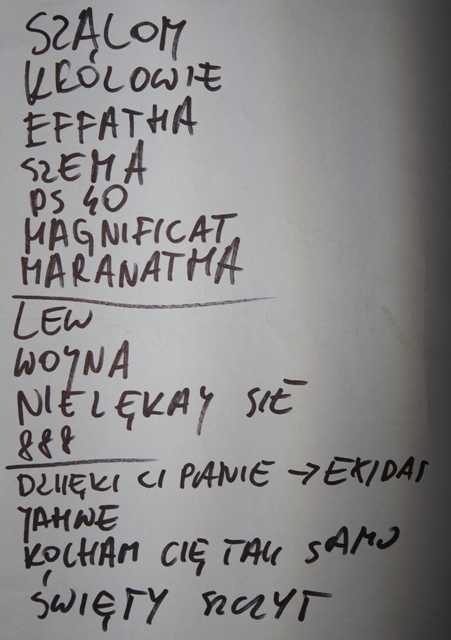 SZALOM
KRÓLOWIE
EFFATHA
SZEMA
PS 40
MAGNIFICAT
MARANATHA
LEW
WOYNA
NIE LĘKAY SIĘ
888
DZIĘKI CI PANIE →
JAHWE
KOCHAM CIĘ TAK SAMO
ŚWIĘTY SZCZYT